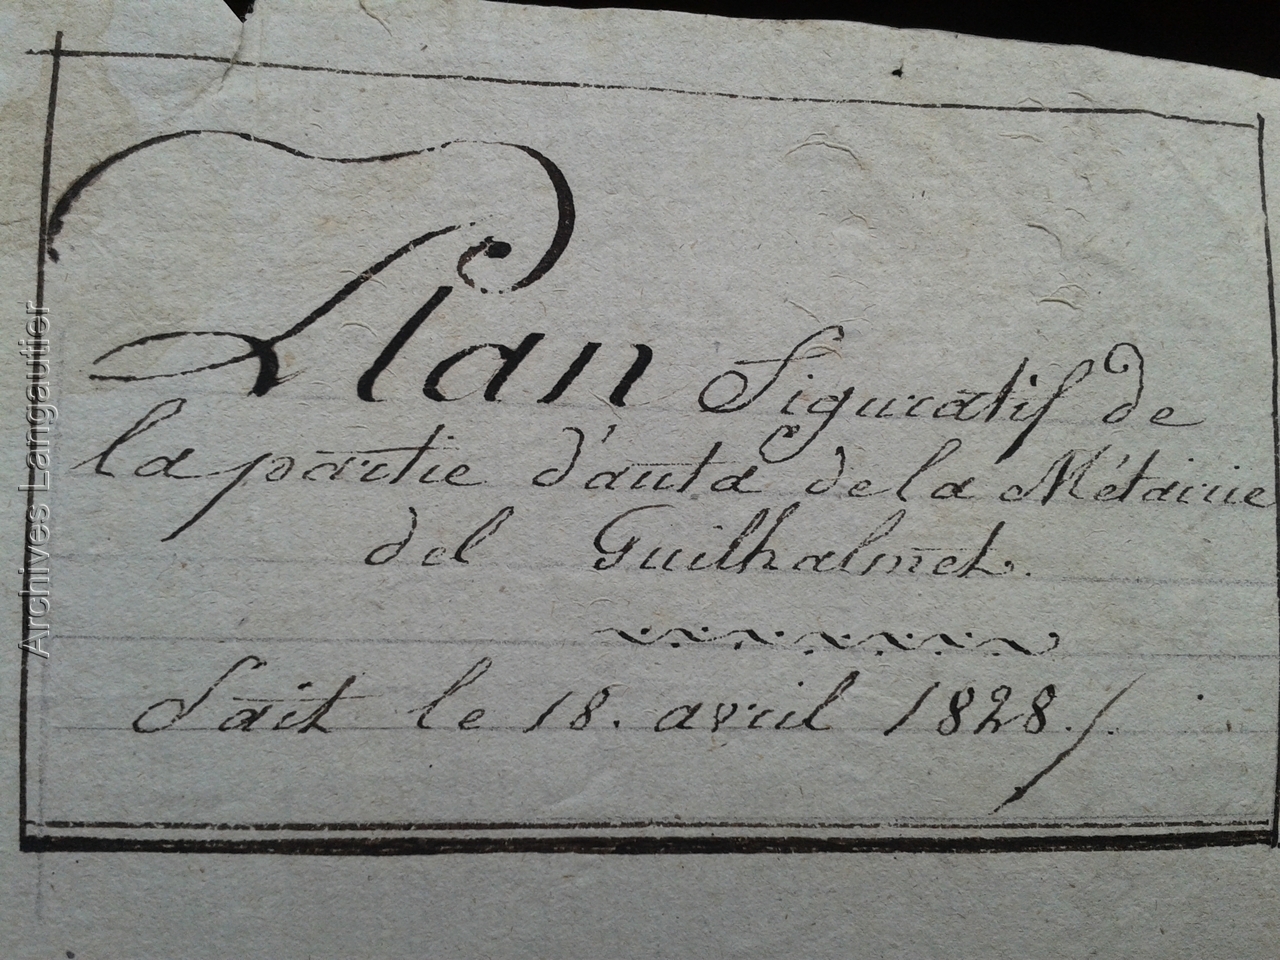 Plan figuratif de
la partie d'auta de la Métairie
del Guilhalmet.
fait le 18. avril 1828./.
Archives Langautier